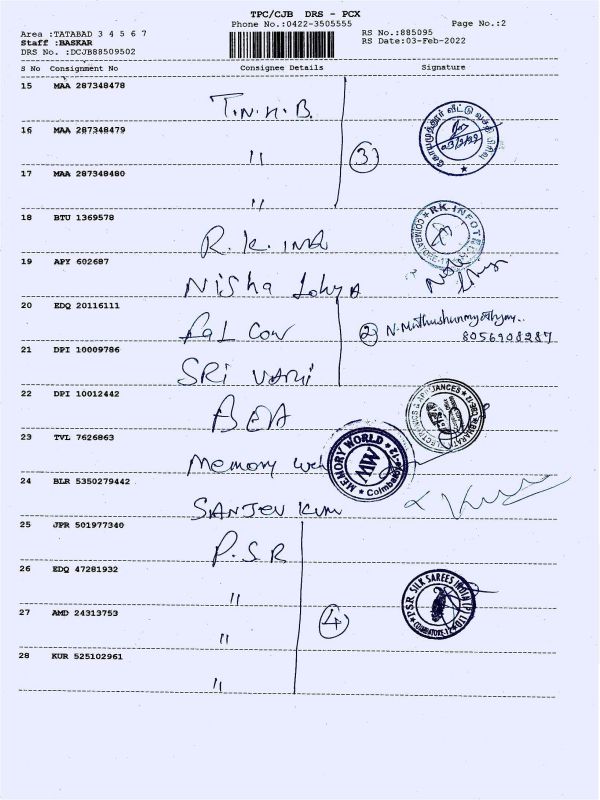 TPC/CJB DRS - PCX
Phone No.:0422-3505555
Page No.:2
Area :TATABAD 3 4 5 6 7
RS No.:885095
Staff :BASKAR
RS Date:03-Feb-2022
DRS No. :DCJB88509502
S No Consignment No Consignee Details Signature
15 MAA 287348478
T.N.H.B.
16 MAA 287348479
" 3
கோயமுத்தூர் வீட்டு வசதி பிரிவு
03/2/22
17 MAA 287348480
"
18 BTU 1369578
R.K. INF
RK INFOTECH
COIMBATORE-12
19 APY 602687
Nisha
20 EDQ 20116111
Fal Con 2
8056908287
21 DPI 10009786
SRI VARI
22 DPI 10012442
BEA
BHARAT ELECTRONICS & APPLIANCES
CBE-12
23 TVL 7626863
Memory
MEMORY WORLD
MW
Coimbatore-12
24 BLR 5350279442
SANJEV KUM
25 JPR 501977340
P.S.R
26 EDQ 47281932
"
P.S.R. SILK SAREES INDIA (P) LTD
COIMBATORE-12
27 AMD 24313753
" 4
28 KUR 525102961
"